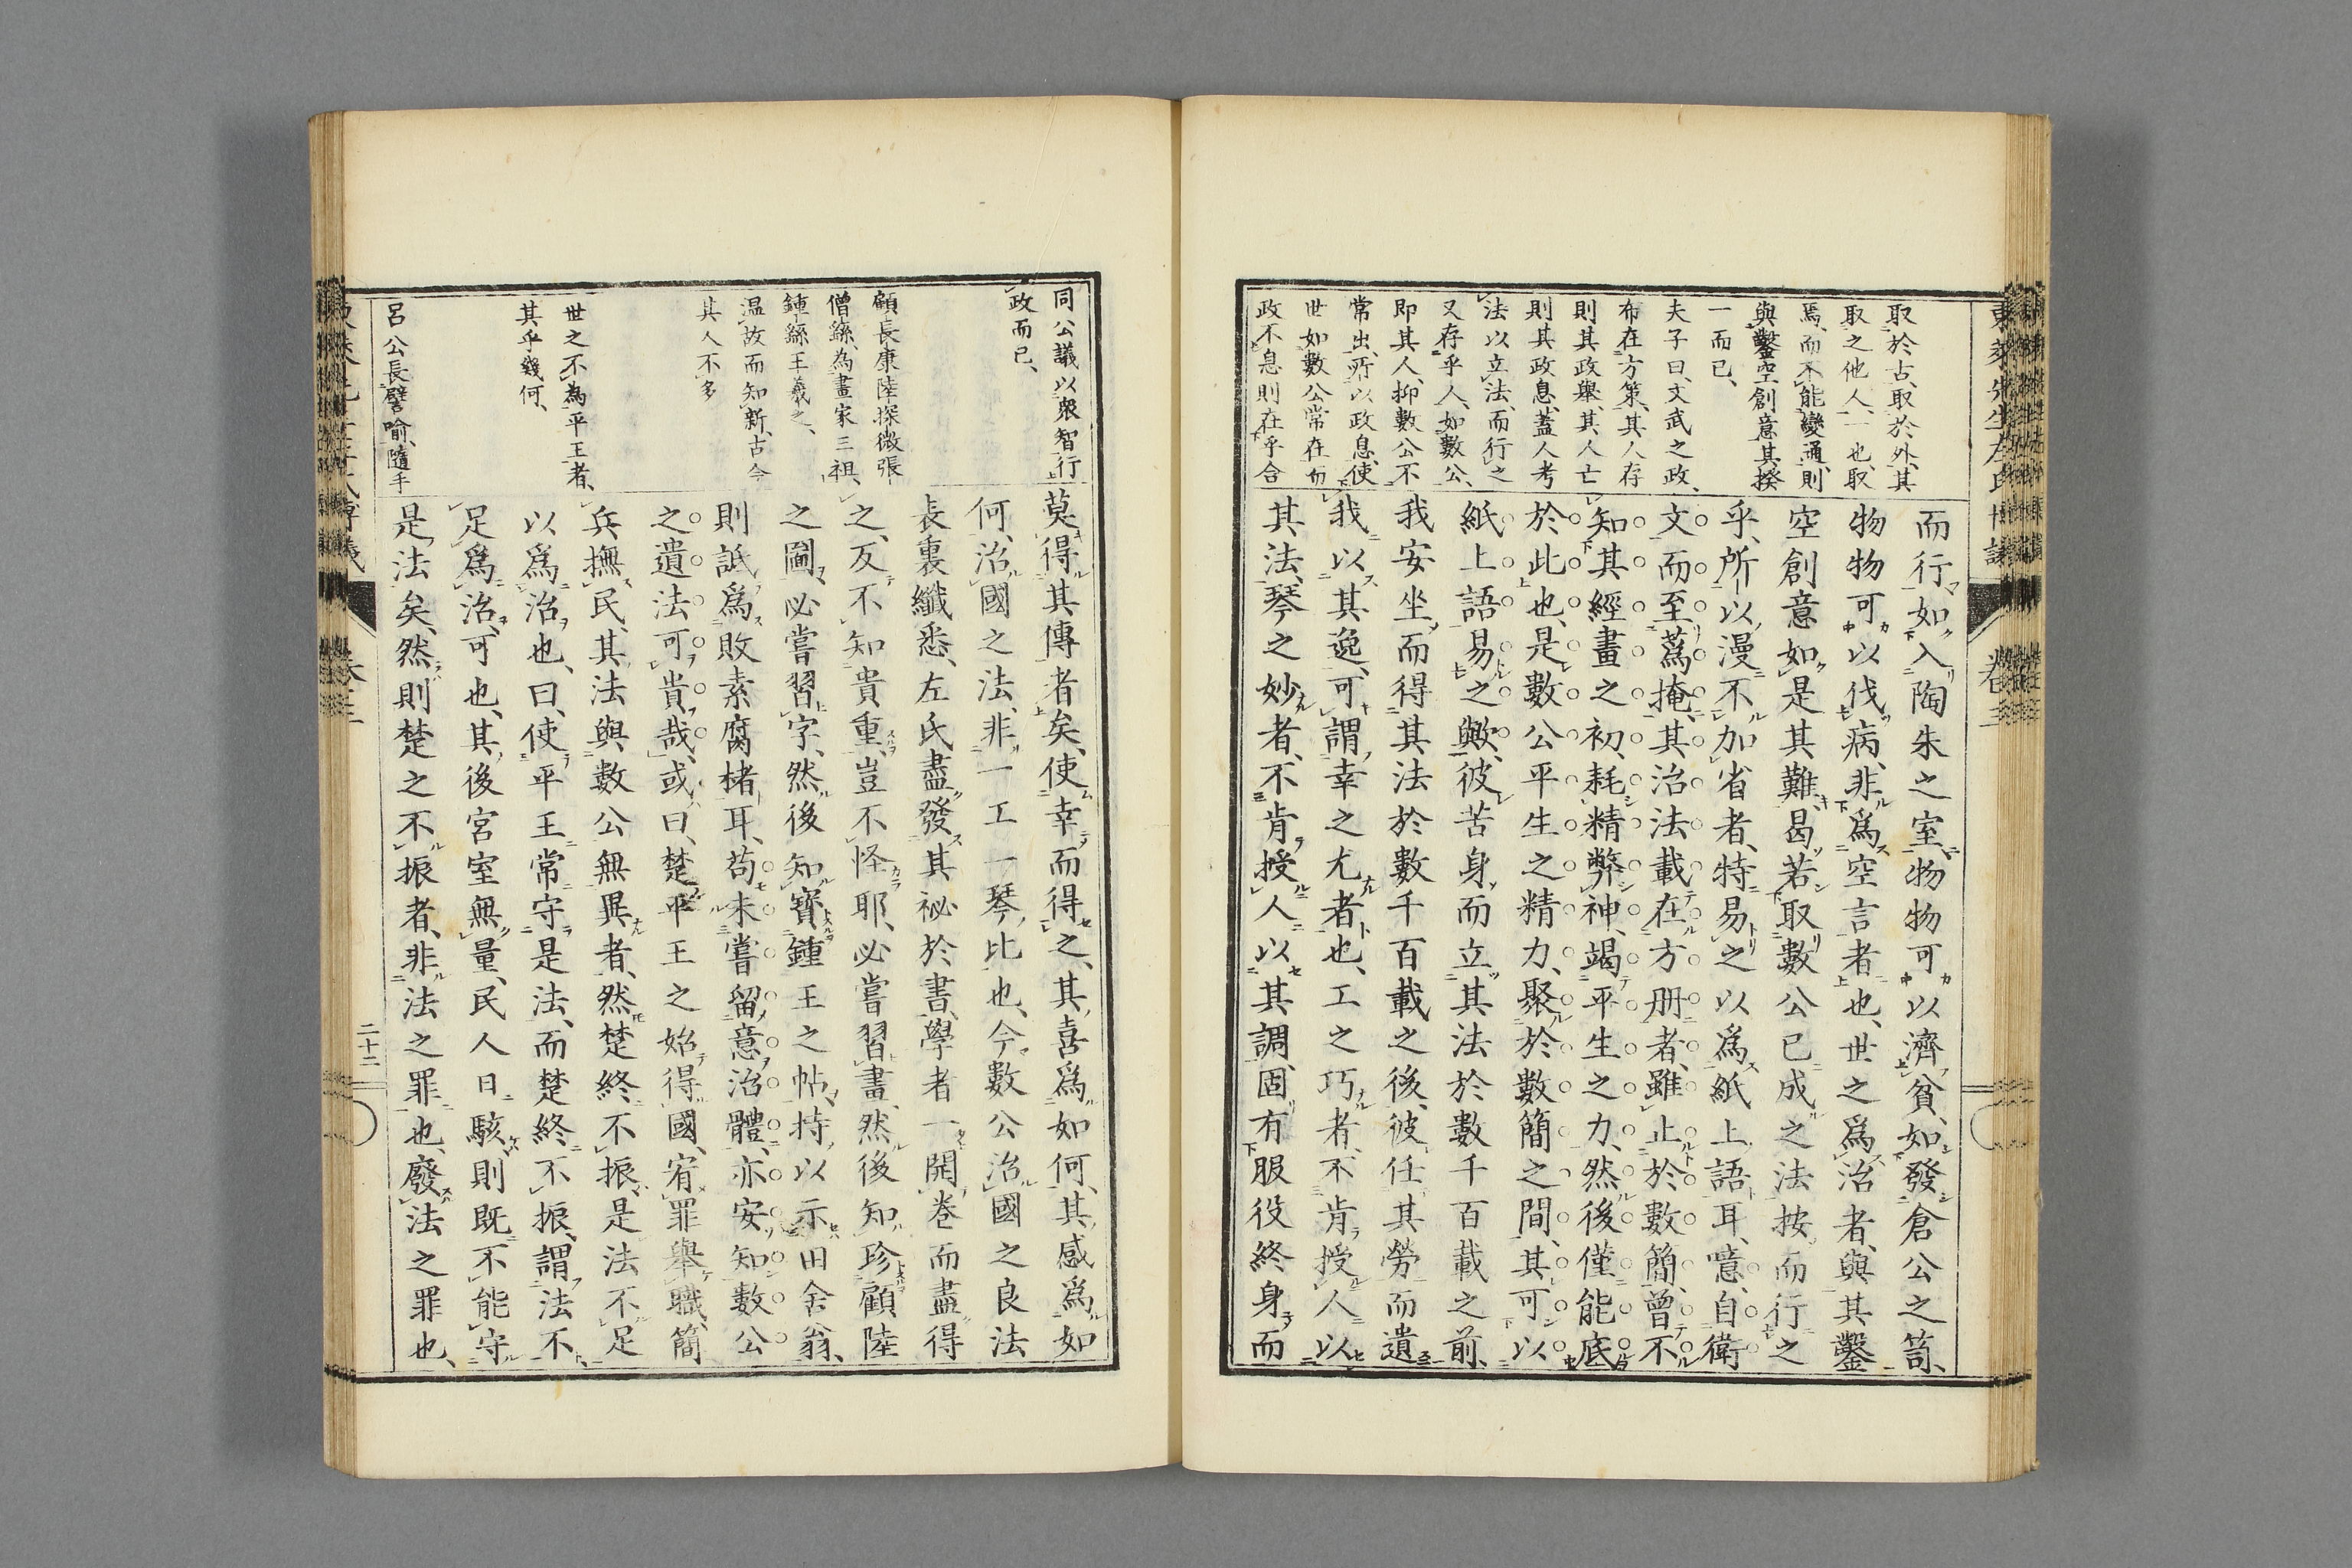 取於古、取於外、其
取之他人、一也、取
焉、而不能變通、則
與鑿空創意其揆
一而已、
夫子曰、文武之政、
布在方策、其人存
則其政舉、其人亡
則其政息、蓋人考
法以立法、而行之
又存乎人、如數公、
即其人、抑數公不
常出、所以政息、使
世如數公常在而
政不息則在乎合
而行如入陶朱之室、物物可以濟貧、如發倉公之笥、
物物可以伐病、非爲空言者也、世之爲治者、與其鑿
空創意如是其難、曷若取數公已成之法按而行之
乎、所以漫不加省者、特易之以爲紙上語耳、噫、自衛
文而至蔿掩、其治法載在方册者、雖止於數簡、曾不
知其經畫之初、耗精弊神、竭平生之力、然後僅能底
於此也、是數公平生之精力、聚於數簡之間、其可以
紙上語易之歟、彼苦身而立其法於數千百載之前、
我安坐而得其法於數千百載之後、彼任其勞而遺
我以其逸、可謂幸之尤者也、工之巧者、不肯授人以
其法、琴之妙者、不肯授人以其調、固有服役終身而
東萊先生左氏博議
卷三
同公議以衆智行
政而已、
顧長康陸探微張
僧繇、為畫家三祖、
鍾繇王羲之、
温故而知新、古今
其人不多
世之不為平王者、
其乎幾何、
呂公長譬喻、隨手
莫得其傳者矣、使幸而得之、其喜爲如何、其感爲如
何、治國之法、非一工一琴比也、今數公治國之良法
表裏纖悉、左氏盡發其祕於書、學者一開卷而盡得
之、反不知貴重、豈不怪耶、必嘗習畫、然後知珍顧陸
之圖、必嘗習字、然後知寶鍾王之帖、持以示田舍翁、
則詆爲敗素腐楮耳、苟未嘗留意治體、亦安知數公
之遺法可貴哉、或曰、楚平王之始得國、宥罪舉職、簡
兵撫民、其法與數公無異者、然楚終不振、是法不足
以爲治也、曰、使平王常守是法、而楚終不振、謂法不
足爲治、可也、其後宮室無量、民人日駭、則既不能守
是法矣、然則楚之不振者、非法之罪也、廢法之罪也、
二十二